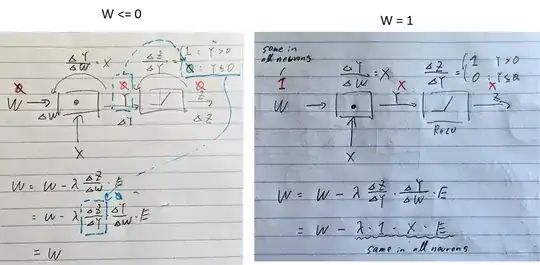 W <= 0
ΔY/ΔW = X
ΔZ/ΔY = { 1 : Y>0
0 : Y≤0
0 0 0
W → • Y Z
ΔW ΔY ΔZ
X
W = W - λ ΔZ/ΔW · E
0
= W - λ ΔZ/ΔY · ΔY/ΔW · E
= W
W = 1
same in
all neurons
1
ΔY/ΔW = X
ΔZ/ΔY = { 1 Y>0
0 : Y≤0
X X
W → • Y Z
ReLU
X
W = W - λ ΔZ/ΔY · ΔY/ΔW · E
= W - λ · 1 · X · E
same in all neurons